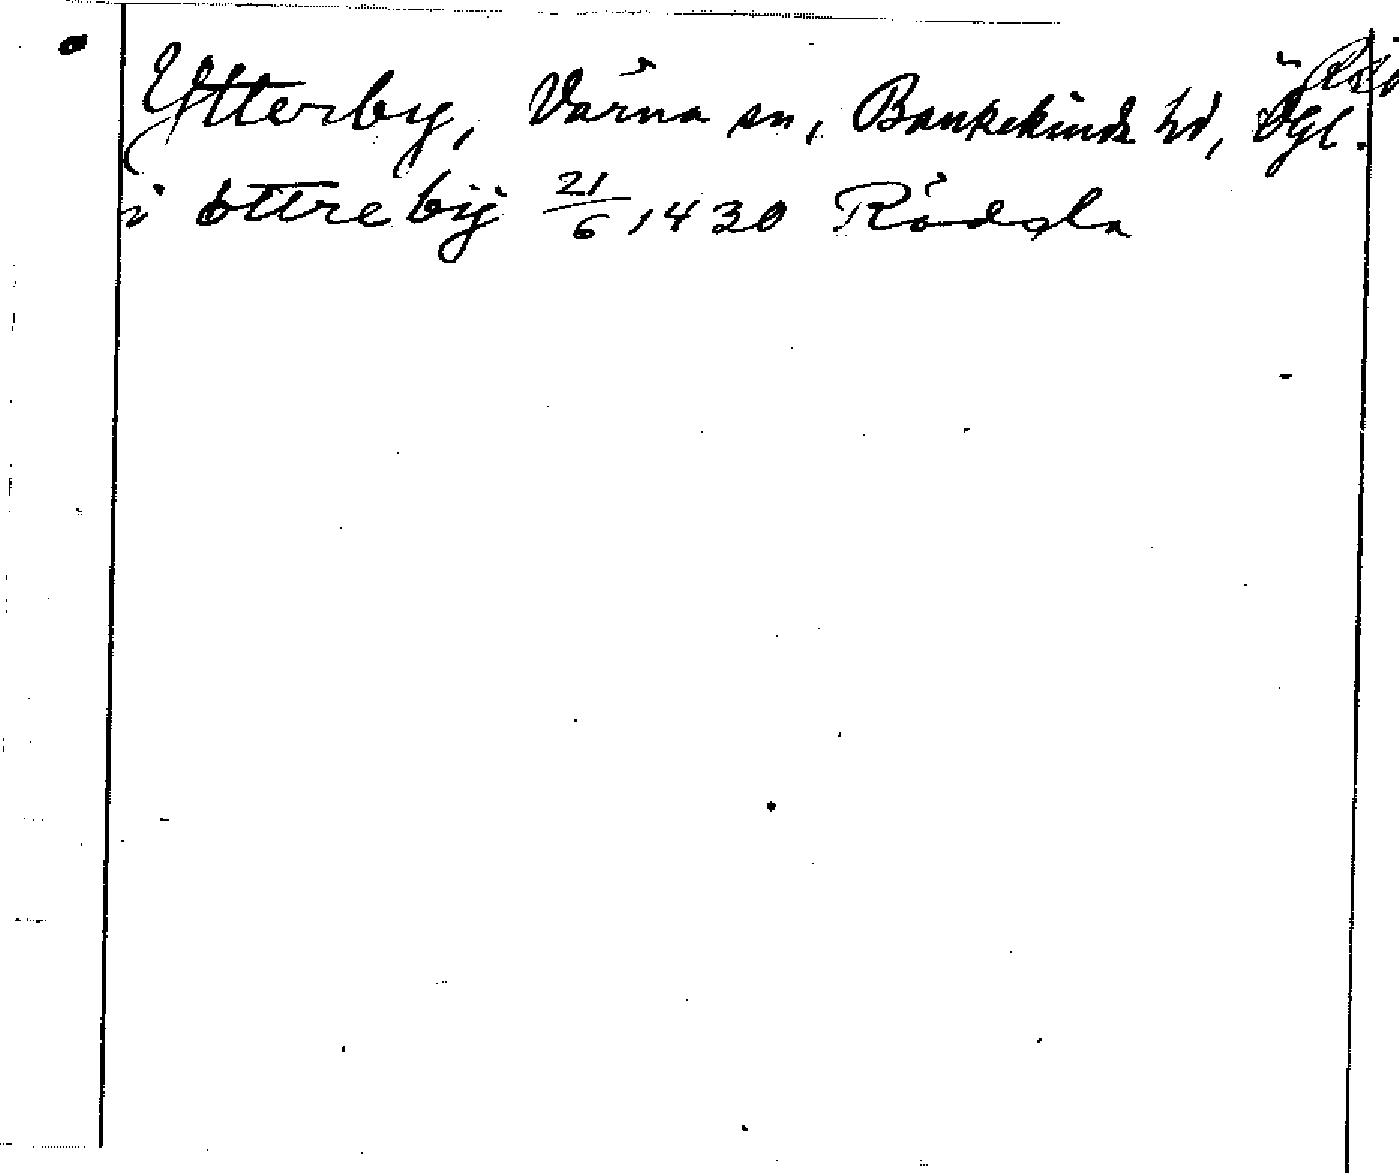 Ytterby, Vårna sn, Bankekinds hd, Ögl.
i ottre bÿ 21/6 1430 Rådsla